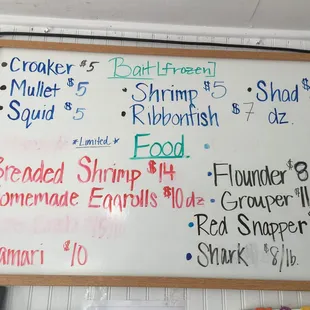 Bait [frozen]
• Croaker $5
• Mullet $5
• Squid $5
• Shrimp $5
• Ribbonfish $7 dz.
• Shad $
*Limited*
Food
Breaded Shrimp $14
Homemade Eggrolls $10 dz
amari $10
• Flounder $8
• Grouper $11
• Red Snapper $
• Shark $8/lb.